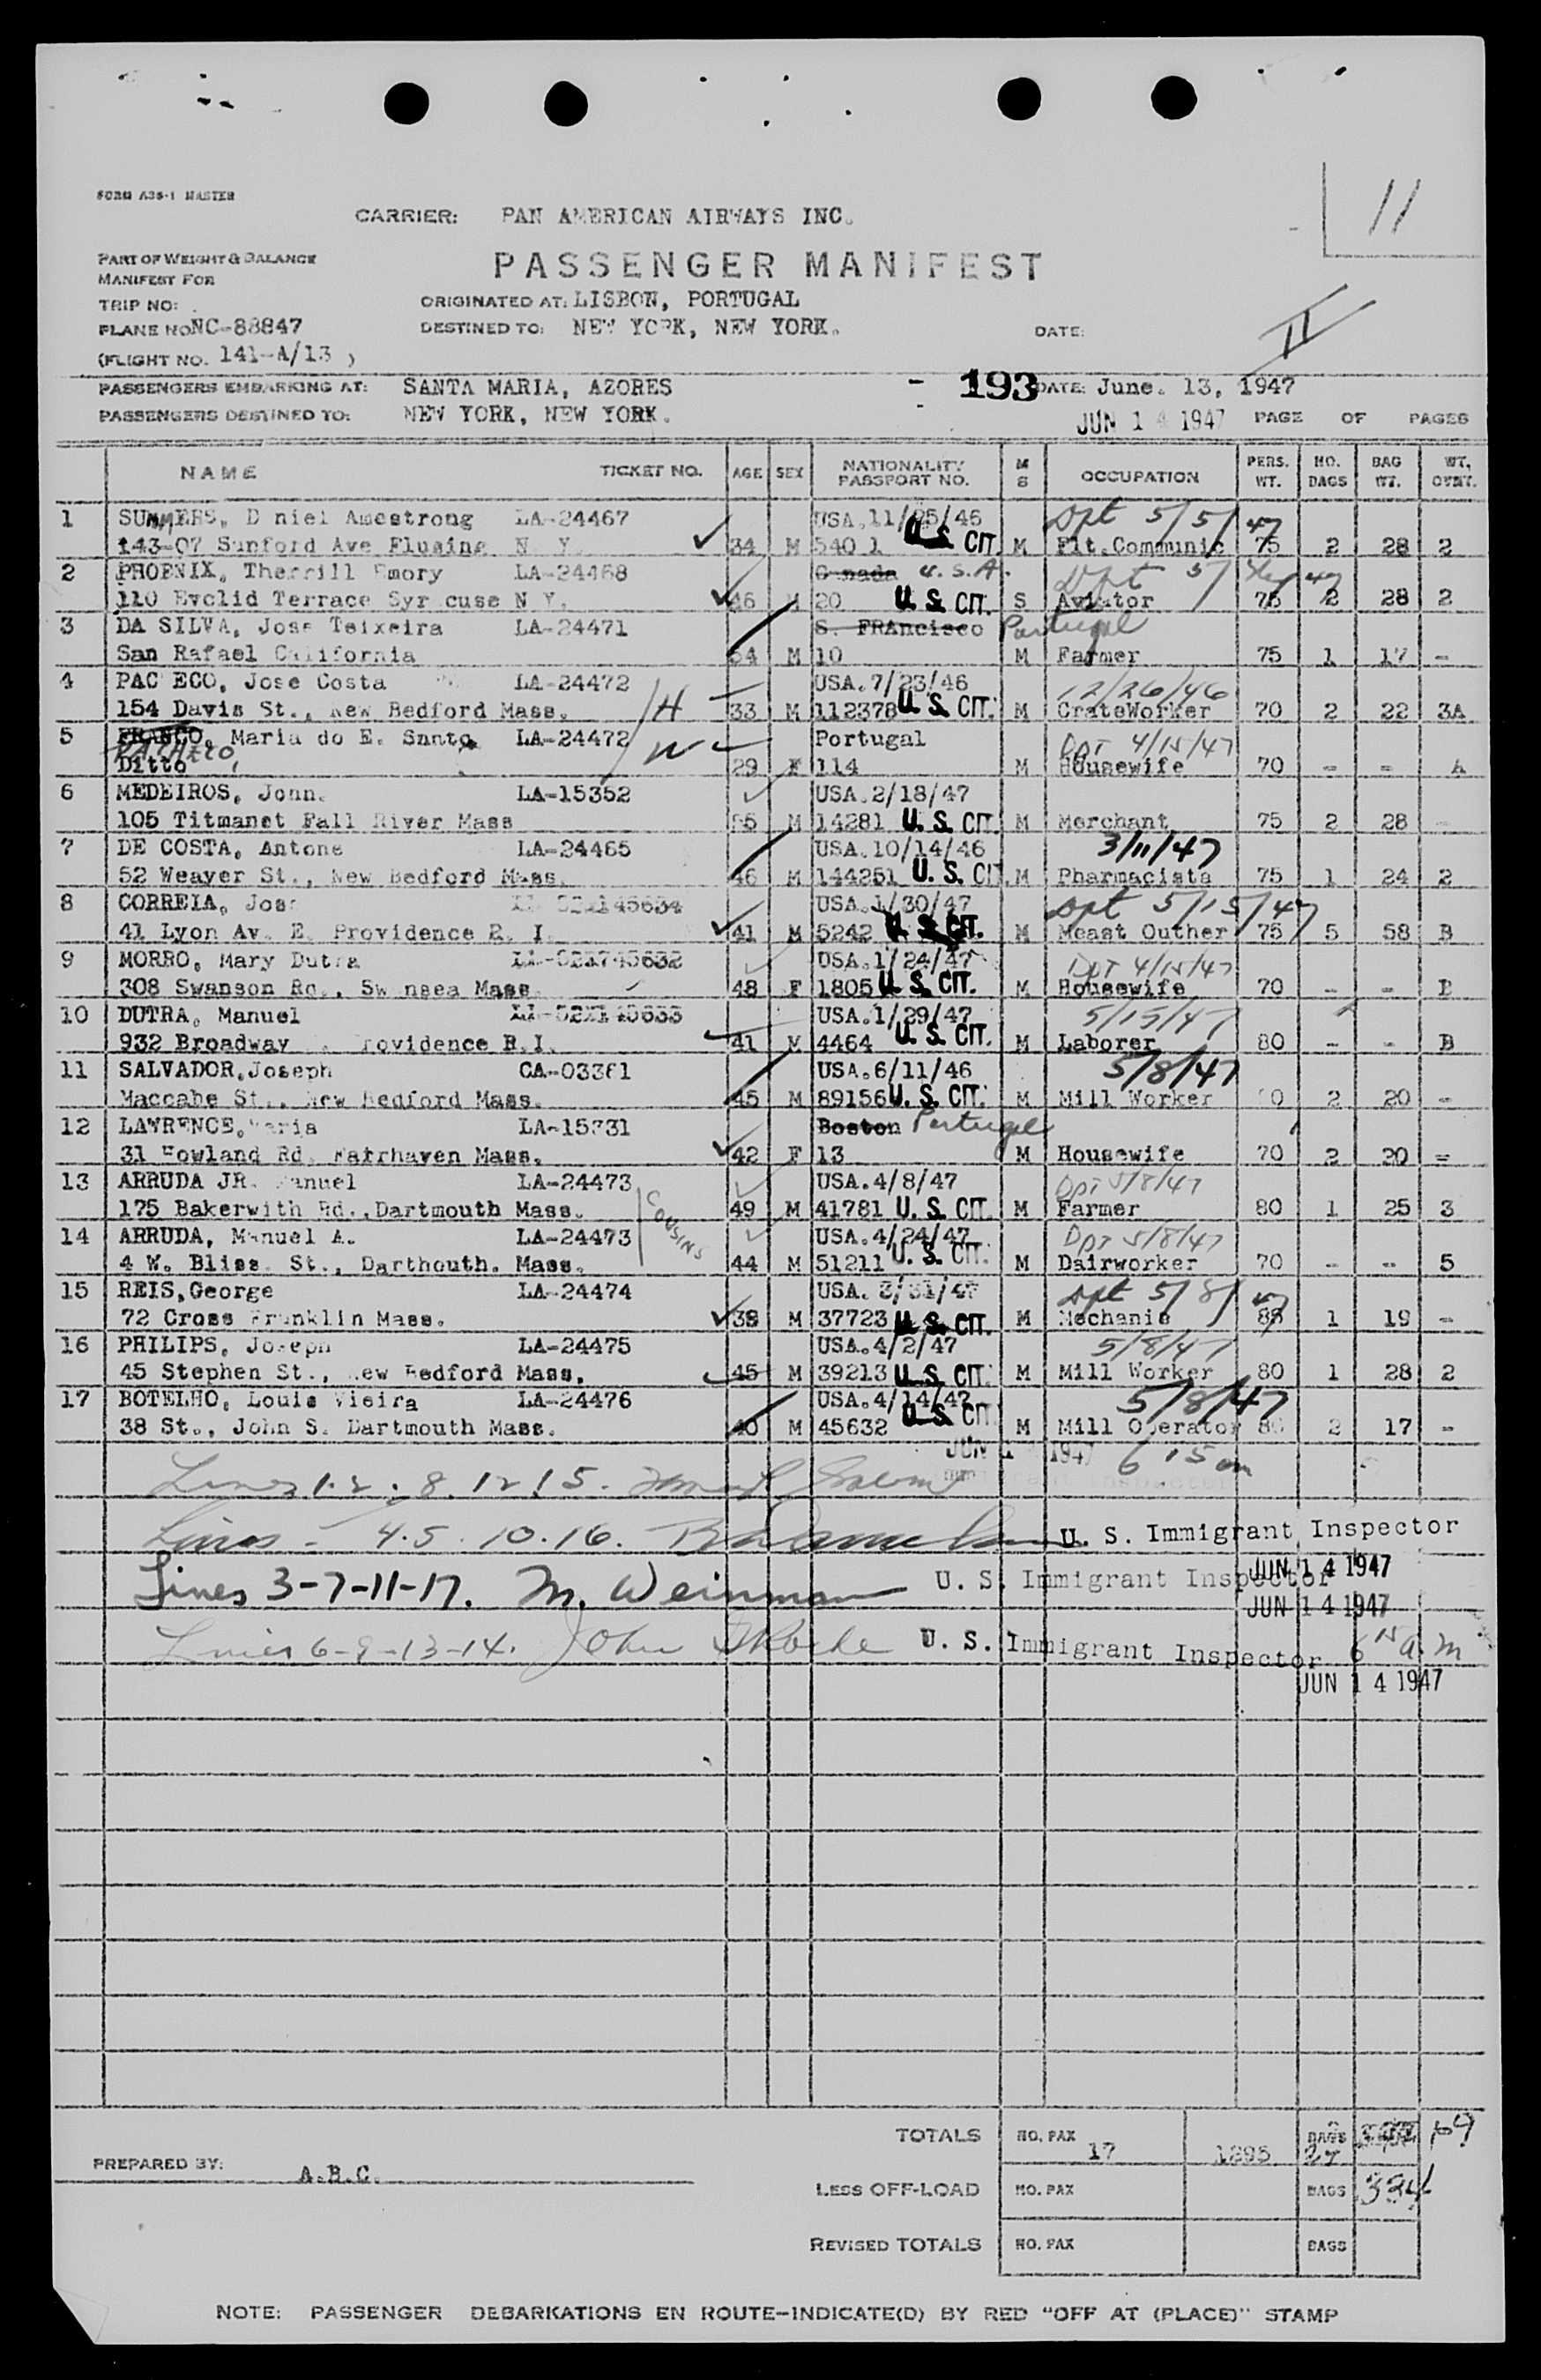 FORM A35-1 MASTER
11
CARRIER: PAN AMERICAN AIRWAYS INC.
PART OF WEIGHT & BALANCE
MANIFEST FOR
PASSENGER MANIFEST
TRIP NO:
ORIGINATED AT: LISBON, PORTUGAL
PLANE NO NC-88847
DESTINED TO: NEW YORK, NEW YORK.
DATE:
II
(FLIGHT NO. 141-A/13 )
PASSENGERS EMBARKING AT: SANTA MARIA, AZORES
- 193
DATE: June. 13, 1947
PASSENGERS DESTINED TO: NEW YORK, NEW YORK.
JUN 14 1947 PAGE OF PAGES
NAME TICKET NO. AGE SEX NATIONALITY PASSPORT NO. M S OCCUPATION PERS. WT. NO. BAGS BAG WT. WT. CVNT.
1 SUMMERS, D niel Amostrong LA-24467 USA.11/25/46 Dpt 5/5/47
143-07 Sunford Ave Flusing N. Y. 34 M 540 1 U. S. CIT. M Flt.Communic 75 2 28 2
2 PHOENIX, Therrill Emory LA-24468 Canada U.S.A. Dpt
110 Evclid Terrace Syr cuse N Y. 46 M 20 U. S. CIT. S Aviator 75 2 28 2
3 DA SILVA, Jose Teixeira LA-24471 S. FRAncisco Portugal
San Rafael California 54 M 10 M Farmer 75 1 17 -
4 PAC ECO, Jose Costa LA-24472 USA.7/23/46 12/26/46
154 Davis St., New Bedford Mass. H 33 M 112378 U. S. CIT. M CrateWorker 70 2 22 3A
5 FRANCO, Maria do E. Santo LA-24472 W Portugal Dpt 4/15/47
Ditto 29 F 114 M Housewife 70 - - A
6 MEDEIROS, John. LA-15352 USA.2/18/47
105 Titmanet Fall River Mass M 14281 U. S. CIT. M Merchant 75 2 28 -
7 DE COSTA, Antone LA-24465 USA.10/14/46 3/11/47
52 Weaver St., New Bedford Mass. 46 M 144251 U. S. CIT. M Pharmacista 75 1 24 2
8 CORREIA, Jose USA.1/30/47 Dpt 5/15/47
41 Lyon Av. E. Providence R. I. 41 M 5242 U. S. CIT. M Meast Outher 75 5 58 B
9 MORRO, Mary Dutra USA.1/24/47 Dpt 4/15/47
308 Swanson Rd., Sw nsea Mass 48 F 1805 U. S. CIT. M Housewife 70 - - B
10 DUTRA, Manuel USA.1/29/47 5/15/47
932 Broadway rovidence R.I. 41 M 4464 U. S. CIT. M Laborer 80 - - B
11 SALVADOR,Joseph CA-03361 USA.6/11/46 5/8/47
Maccabe St., New Bedford Mass. 45 M 89156 U. S. CIT. M Mill Worker 0 2 20 -
12 LAWRENCE,Maria LA-15731 Boston Portugal
31 Howland Rd. Fairhaven Mass. 42 F 13 M Housewife 70 2 20 -
13 ARRUDA JR. Manuel LA-24473 USA.4/8/47 Dpt 5/8/47
175 Bakerwith Rd.,Dartmouth Mass. COUSINS 49 M 41781 U. S. CIT. M Farmer 80 1 25 3
14 ARRUDA, Manuel A. LA-24473 USA.4/24/47 Dpt 5/8/47
4 W. Bliss. St., Darthouth. Mass. 44 M 51211 U. S. CIT. M Dairworker 70 - - 5
15 REIS,George LA-24474 USA. 3/31/47 Dpt 5/8/47
72 Cross Franklin Mass. 38 M 37723 U. S. CIT. M Mechanic 88 1 19 -
16 PHILIPS, Joseph LA-24475 USA.4/2/47 5/8/47
45 Stephen St., New Bedford Mass. 45 M 39213 U. S. CIT. M Mill Worker 80 1 28 2
17 BOTELHO, Louis Vieira LA-24476 USA.4/14/47 5/8/47
38 St., John S. Dartmouth Mass. 40 M 45632 U. S. CIT M Mill Operator 80 2 17 -
JUN 1 1947 6 15 am
Lines 1. 2. 8. 12 15.
Lines - 4. 5. 10. 16. U. S. Immigrant Inspector
JUN 14 1947
Lines 3-7-11-17. M. Weinman U. S. Immigrant Inspector
JUN 14 1947
Lines 6-9-13-14. John U. S. Immigrant Inspector 6 15 a.m
JUN 14 1947
TOTALS NO. PAX 17 1295 BAGS 27 69
PREPARED BY: A.B.C.
LESS OFF-LOAD NO. PAX BAGS 334
REVISED TOTALS NO. PAX BAGS
NOTE: PASSENGER DEBARKATIONS EN ROUTE-INDICATE(D) BY RED "OFF AT (PLACE)" STAMP